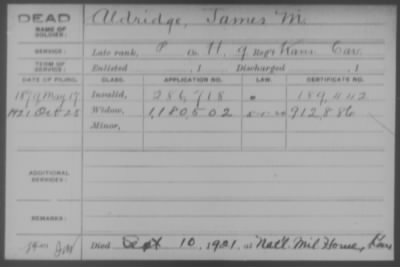 DEAD
NAME OF SOLDIER:
Aldridge, James M.
SERVICE:
Late rank, P Co. H, 9 Reg't Kans. Cav.
TERM OF SERVICE:
Enlisted , 1 Discharged , 1
DATE OF FILING. CLASS. APPLICATION NO. LAW. CERTIFICATE NO.
1879 May 17 Invalid, 286,718 " 189,442
1921 Oct 25 Widow, 1,180,502 912,886
Minor,
ADDITIONAL SERVICES:
REMARKS:
Died Sept 10, 1901, at Natl. Mil. Home, Kans